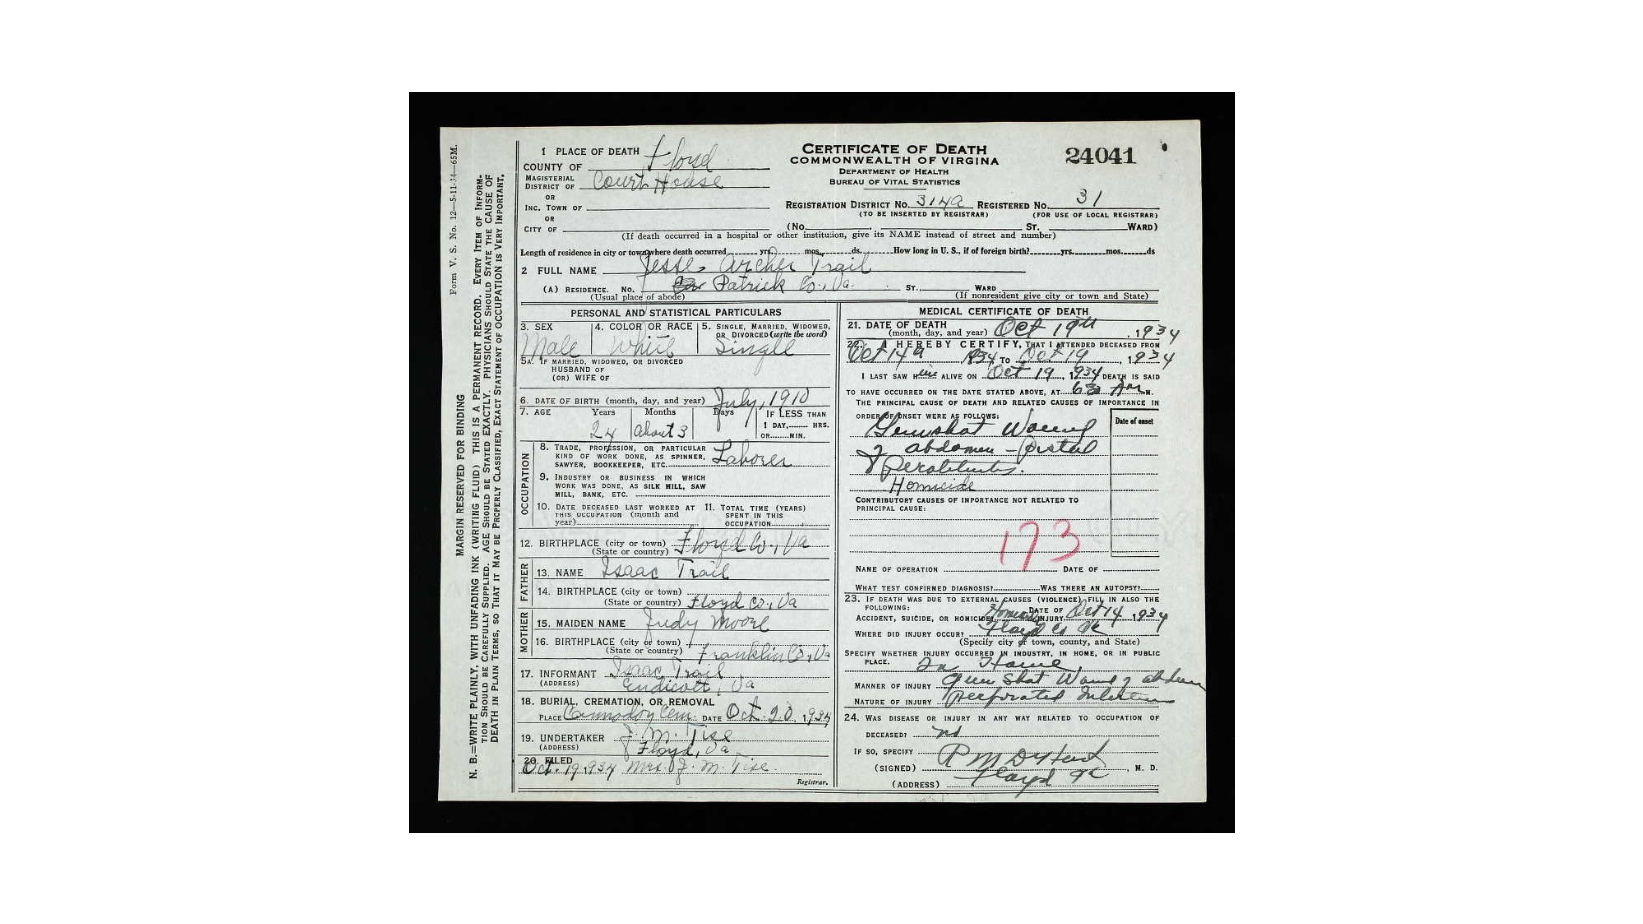 Form V. S. No. 12—5-11-34—65M.
MARGIN RESERVED FOR BINDING
N. B.—WRITE PLAINLY, WITH UNFADING INK (WRITING FLUID) THIS IS A PERMANENT RECORD. EVERY ITEM OF INFORM-
TION SHOULD BE CAREFULLY SUPPLIED. AGE SHOULD BE STATED EXACTLY. PHYSICIANS SHOULD STATE THE CAUSE OF
DEATH IN PLAIN TERMS, SO THAT IT MAY BE PROPERLY CLASSIFIED, EXACT STATEMENT OF OCCUPATION IS VERY IMPORTANT.
1 PLACE OF DEATH
COUNTY OF Floyd
MAGISTERIAL
DISTRICT OF Court House
OR
INC. TOWN OF
OR
CITY OF
CERTIFICATE OF DEATH
COMMONWEALTH OF VIRGINA
DEPARTMENT OF HEALTH
BUREAU OF VITAL STATISTICS
24041
REGISTRATION DISTRICT NO. 314a REGISTERED NO. 31
(TO BE INSERTED BY REGISTRAR) (FOR USE OF LOCAL REGISTRAR)
(No. ST. WARD)
(If death occurred in a hospital or other institution, give its NAME instead of street and number)
Length of residence in city or town where death occurred yrs. mos. ds. How long in U. S., if of foreign birth? yrs. mos. ds
2 FULL NAME Jesse Archer Trail
(A) RESIDENCE. No. Patrick Co., Va. ST. WARD
(Usual place of abode) (If nonresident give city or town and State)
PERSONAL AND STATISTICAL PARTICULARS
3. SEX 4. COLOR OR RACE 5. SINGLE, MARRIED, WIDOWED,
OR DIVORCED (write the word)
Male White Single
5A. IF MARRIED, WIDOWED, OR DIVORCED
HUSBAND OF
(OR) WIFE OF
6. DATE OF BIRTH (month, day, and year) July, 1910
7. AGE Years Months Days IF LESS THAN
1 DAY, HRS.
OR MIN.
24 About 3
OCCUPATION
8. TRADE, PROFESSION, OR PARTICULAR
KIND OF WORK DONE, AS SPINNER,
SAWYER, BOOKKEEPER, ETC. Laborer
9. INDUSTRY OR BUSINESS IN WHICH
WORK WAS DONE, AS SILK MILL, SAW
MILL, BANK, ETC.
10. DATE DECEASED LAST WORKED AT
THIS OCCUPATION (month and
year)
11. TOTAL TIME (YEARS)
SPENT IN THIS
OCCUPATION
12. BIRTHPLACE (city or town) Floyd Co., Va
(State or country)
FATHER
13. NAME Isaac Trail
14. BIRTHPLACE (city or town)
(State or country) Floyd Co., Va
MOTHER
15. MAIDEN NAME Judy Moore
16. BIRTHPLACE (city or town)
(State or country) Franklin Co., Va
17. INFORMANT Isaac Trail
(ADDRESS) Endicott, Va
18. BURIAL, CREMATION, OR REMOVAL
PLACE Cem. DATE Oct. 20, 1934
19. UNDERTAKER J. M. Tise
(ADDRESS) Floyd, Va
20. FILED
Oct. 19, 1934 Mrs. J. M. Tise
Registrar.
MEDICAL CERTIFICATE OF DEATH
21. DATE OF DEATH
(month, day, and year) Oct 19th, 1934
22. I HEREBY CERTIFY, THAT I ATTENDED DECEASED FROM
Oct 14th 1934 TO Oct 19, 1934
I LAST SAW him ALIVE ON Oct 19, 1934 DEATH IS SAID
TO HAVE OCCURRED ON THE DATE STATED ABOVE, AT 6 30 A M.
THE PRINCIPAL CAUSE OF DEATH AND RELATED CAUSES OF IMPORTANCE IN
ORDER OF ONSET WERE AS FOLLOWS:
Date of onset
Gunshot Wound
of abdomen - Pistol
Peritonitis.
Homicide
CONTRIBUTORY CAUSES OF IMPORTANCE NOT RELATED TO
PRINCIPAL CAUSE:
173
NAME OF OPERATION DATE OF
WHAT TEST CONFIRMED DIAGNOSIS? WAS THERE AN AUTOPSY?
23. IF DEATH WAS DUE TO EXTERNAL CAUSES (VIOLENCE) FILL IN ALSO THE
FOLLOWING:
ACCIDENT, SUICIDE, OR HOMICIDE Homicide DATE OF INJURY Oct 14, 1934
WHERE DID INJURY OCCUR? Floyd Co Va
(Specify city or town, county, and State)
SPECIFY WHETHER INJURY OCCURRED IN INDUSTRY, IN HOME, OR IN PUBLIC
PLACE. In Home,
MANNER OF INJURY Gun Shot Wound of abdomen
NATURE OF INJURY Perforated Intestine
24. WAS DISEASE OR INJURY IN ANY WAY RELATED TO OCCUPATION OF
DECEASED? No
IF SO, SPECIFY
(SIGNED) R M D, M. D.
(ADDRESS) Floyd Va